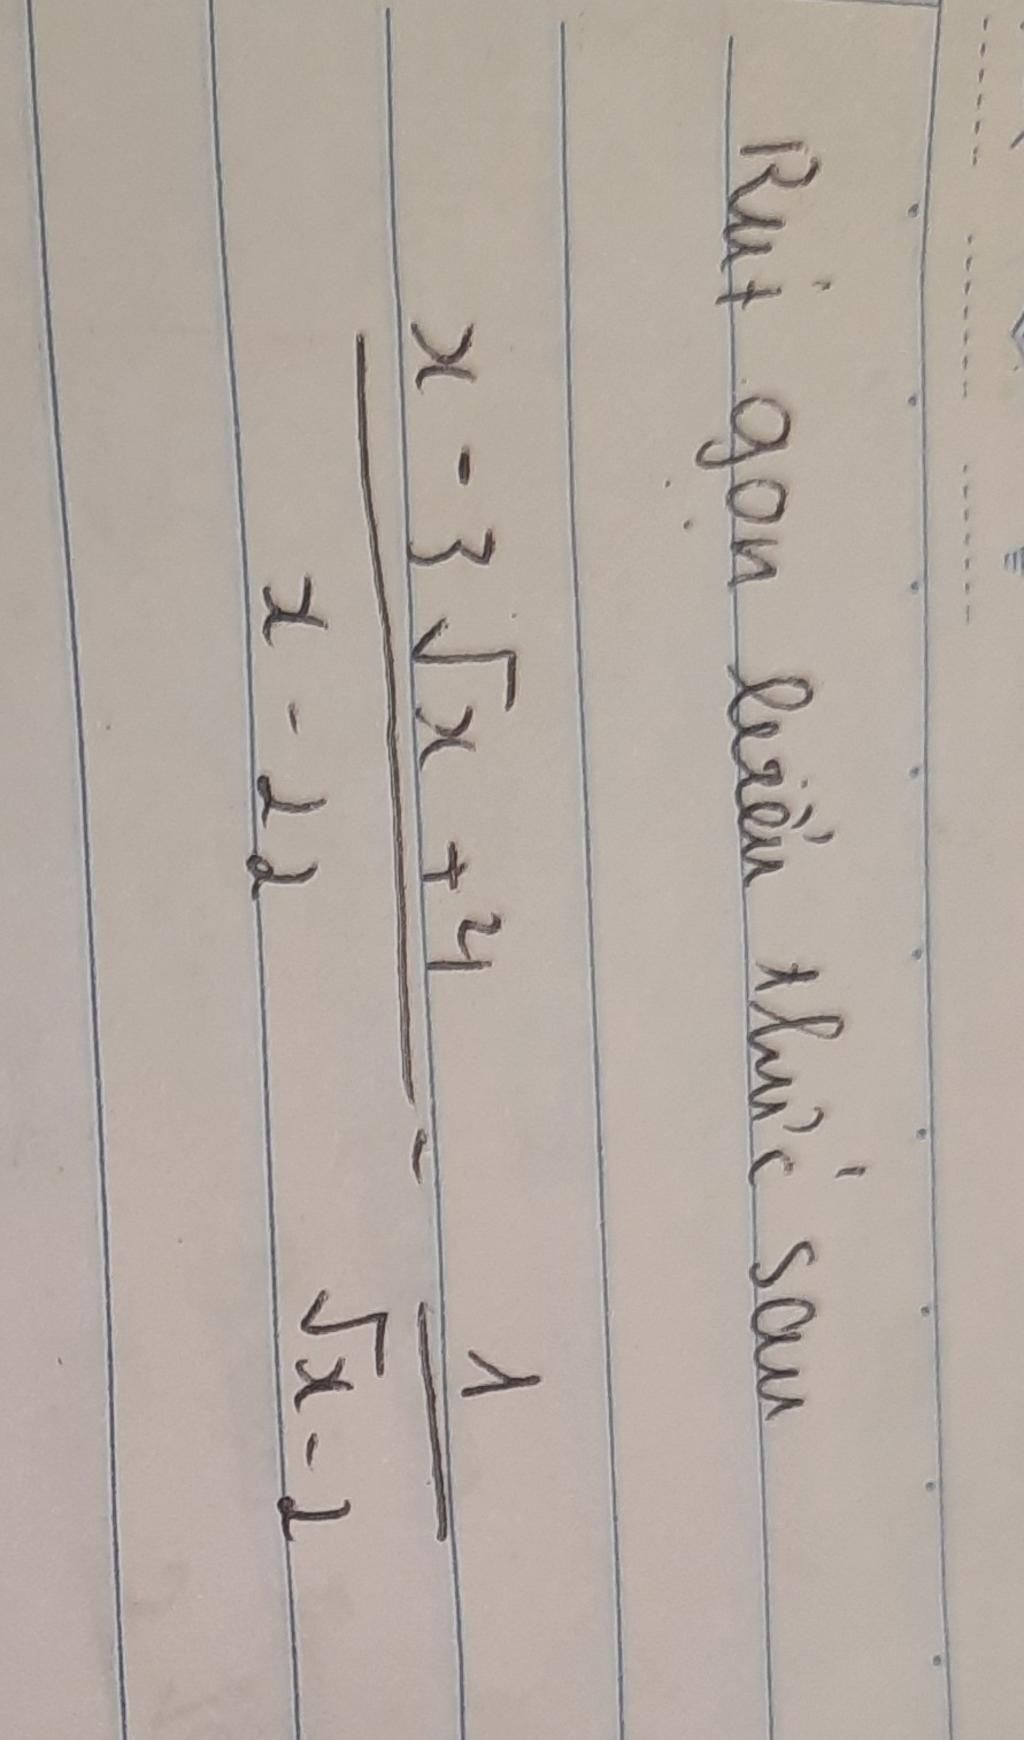 Rút gọn biểu thức sau
x - 3√x + 4
x - 22
-
1
√x - 2